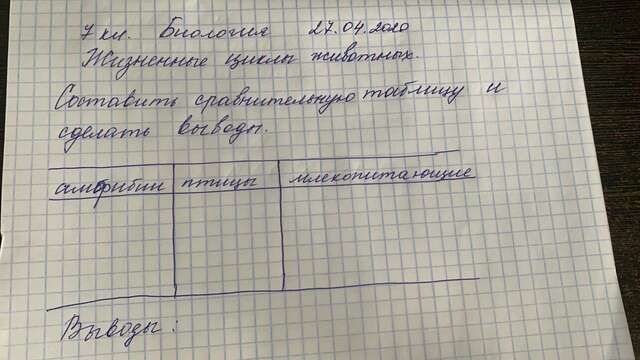 7 кл. Биология 27.04.2020
Жизненные циклы животных.
Составить сравнительную таблицу и
сделать выводы.
амфибии птицы млекопитающие
Выводы: